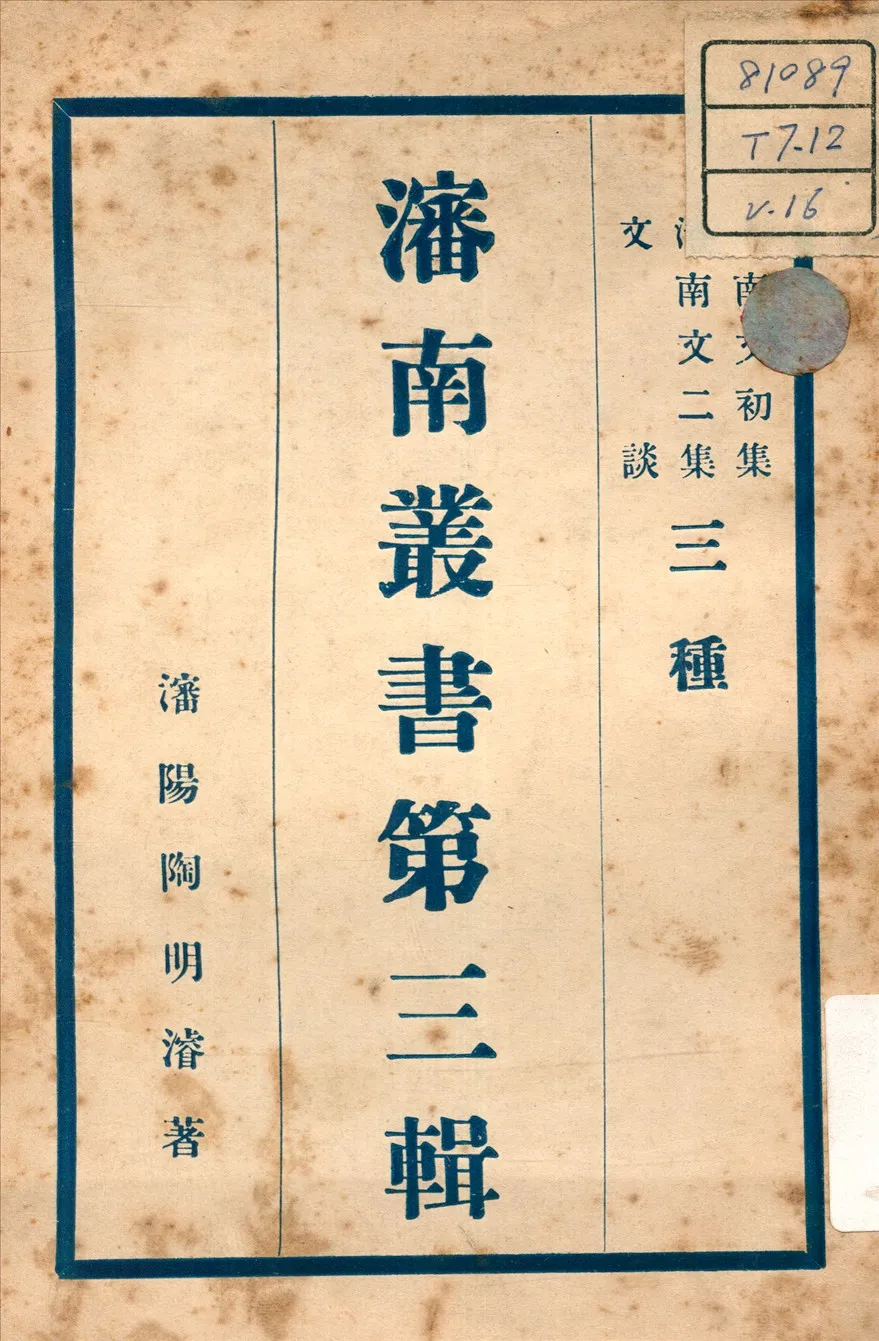 81089
T7-12
v.16
南文初集
南文二集
文談
三種
瀋南叢書第三輯
瀋陽陶明濬著